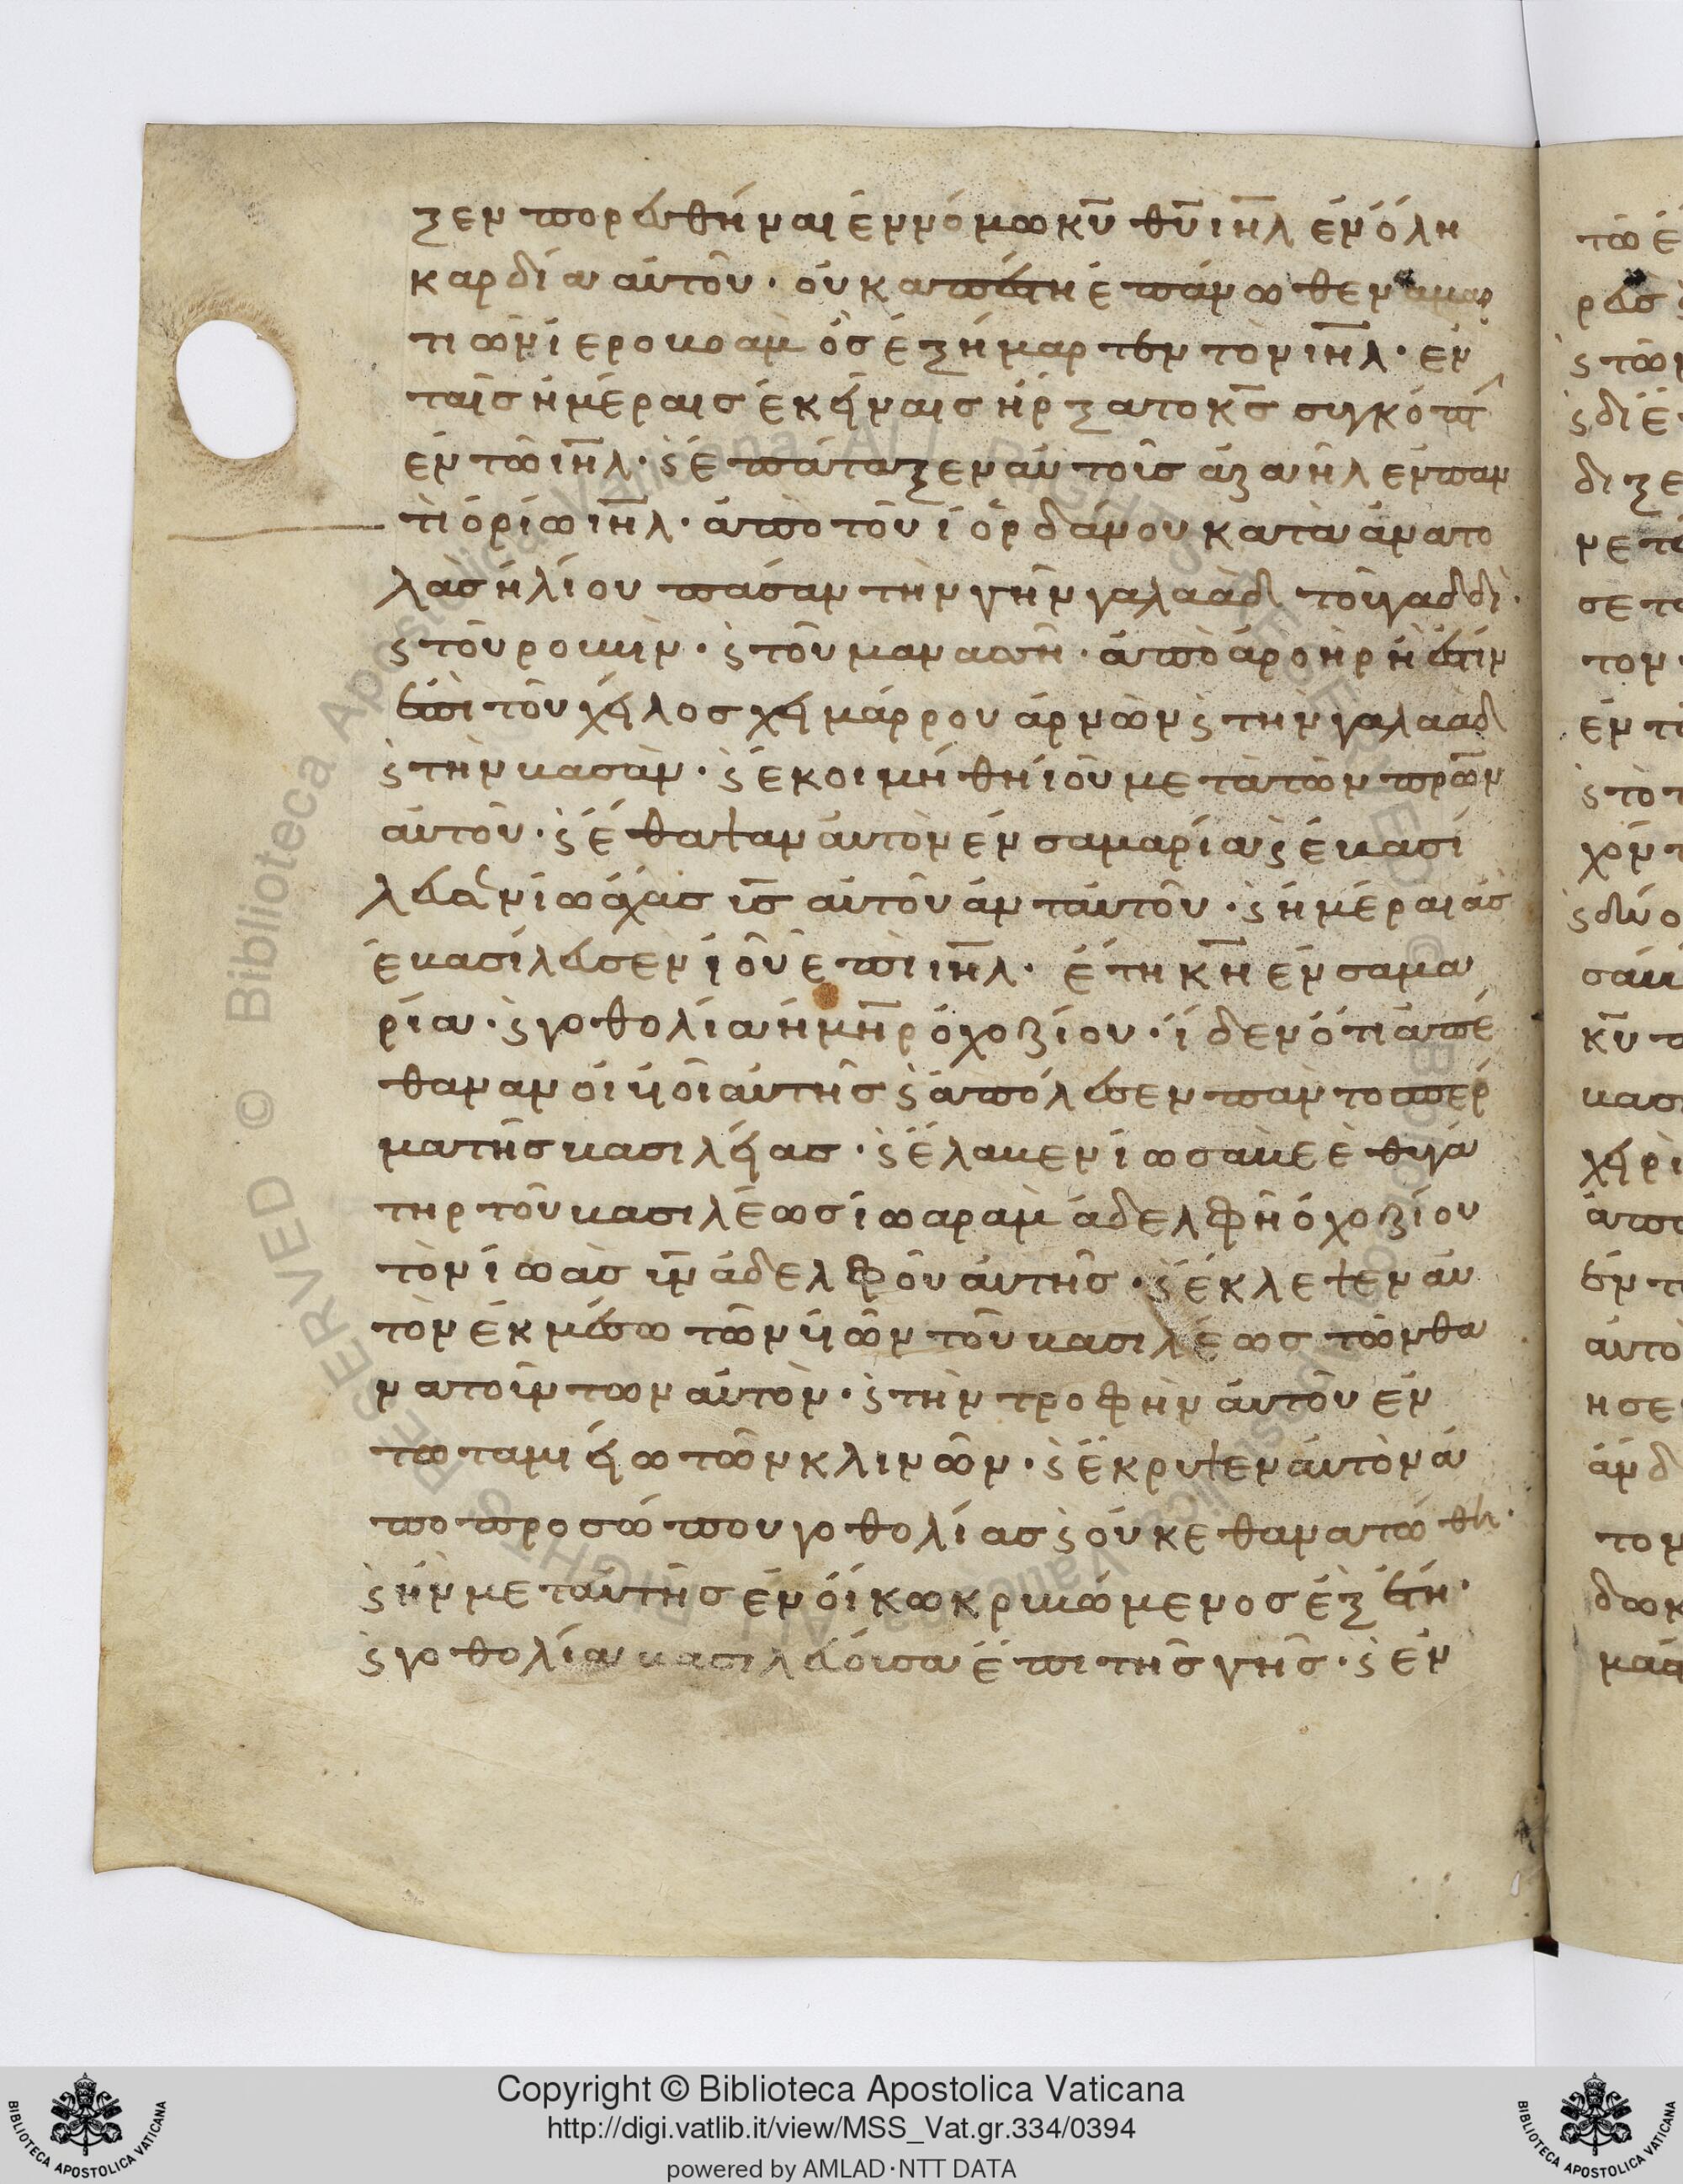 ξεν πορευθήναι ἐν νόμω κ̅υ̅ θ̅υ̅ ι̅η̅λ̅ ἐν ὅλη
καρδία αὐτοῦ· οὐκ απέστη ἐπάνωθεν αμαρ
τιῶν ἱεροβοαμ ὃσ ἐξήμαρτεν τὸν ι̅η̅λ̅· ἐν
ταῖσ ἡμέραισ ἐκείναισ ἤρξατο κ̅σ̅ συγκόπτ
ἐν τῶ ι̅η̅λ̅· ϛ ἐπάταξεν αὐτοῖσ ἀζαὴλ ἐν παν
τὶ ὁρίω ι̅η̅λ̅· ἀπο τοῦ ἰορδάνου κατὰ ἀνατο
λὰσ ἡλίου πάσαν τὴν γῆν γαλαὰδ τοῦ γαδδὶ·
ϛ τοῦ ρουβὴν· ϛ τοῦ μανασσῆ· ἀπὸ ἀροὴρ ἥ ἐστιν
ἐπὶ τοῦ χείλοσ χειμάρρου ἀρνῶν ϛ την γαλαὰδ
ϛ τὴν βασὰν· ϛ ἐκοιμήθη ἰοῦ μετὰ τῶν π̅ρ̅ω̅ν̅
αὐτοῦ· ϛ ἔθαψαν ἀυτὸν ἐν σαμαρία ϛ ἐβασί
λευσεν ἰωάχασ υ̅σ̅ αὐτοῦ ἀντ αὐτοῦ· ϛ ἡμέραι ἁσ
ἐβασίλευσεν ἰοῦ ἐπὶ ι̅η̅λ̅· ἔτη κ̅η̅ ἐν σαμα
ρία· ϛ γοθολία ἡ μ̅η̅ρ̅ ὀχοζίου· ἴδεν ὅτι ἀπέ
θαναν ὁι ὑιοῖ αὐτῆσ ϛ ἀπόλεσεν παν το σπέρ
μα τῆσ βασιλείασ· ϛ ἔλαβεν ἰωσαβεὲ θυγά
τηρ τοῦ βασιλέωσ ἰωαραμ ἀδελφῆ ὀχοζίου
τὸν ἰωὰσ υ̅ν̅ ἀδελφοῦ ἀυτῆσ· ϛ ἔκλεψεν αὐ
τὸν ἐκ μέσω τῶν ὑιῶν τοῦ βασιλέωσ τῶν θα
νατοῦντων αὐτὸν· ϛ τὴν τροφὴν ἀυτοῦ ἐν
τω ταμιείω τῶν κλινῶν· ϛ ἔκρυψεν ἀυτὸν ἀ
πο προσώπου γοθολίασ ϛ οὐκ εθανατώθη·
ϛ ἦν μετ αὐτῆσ ἐν ὄικω κρυβώμενοσ ἓξ ἔτη·
ϛ γοθολία βασιλεύουσα ἐπι τῆσ γῆσ· ϛ ἐν